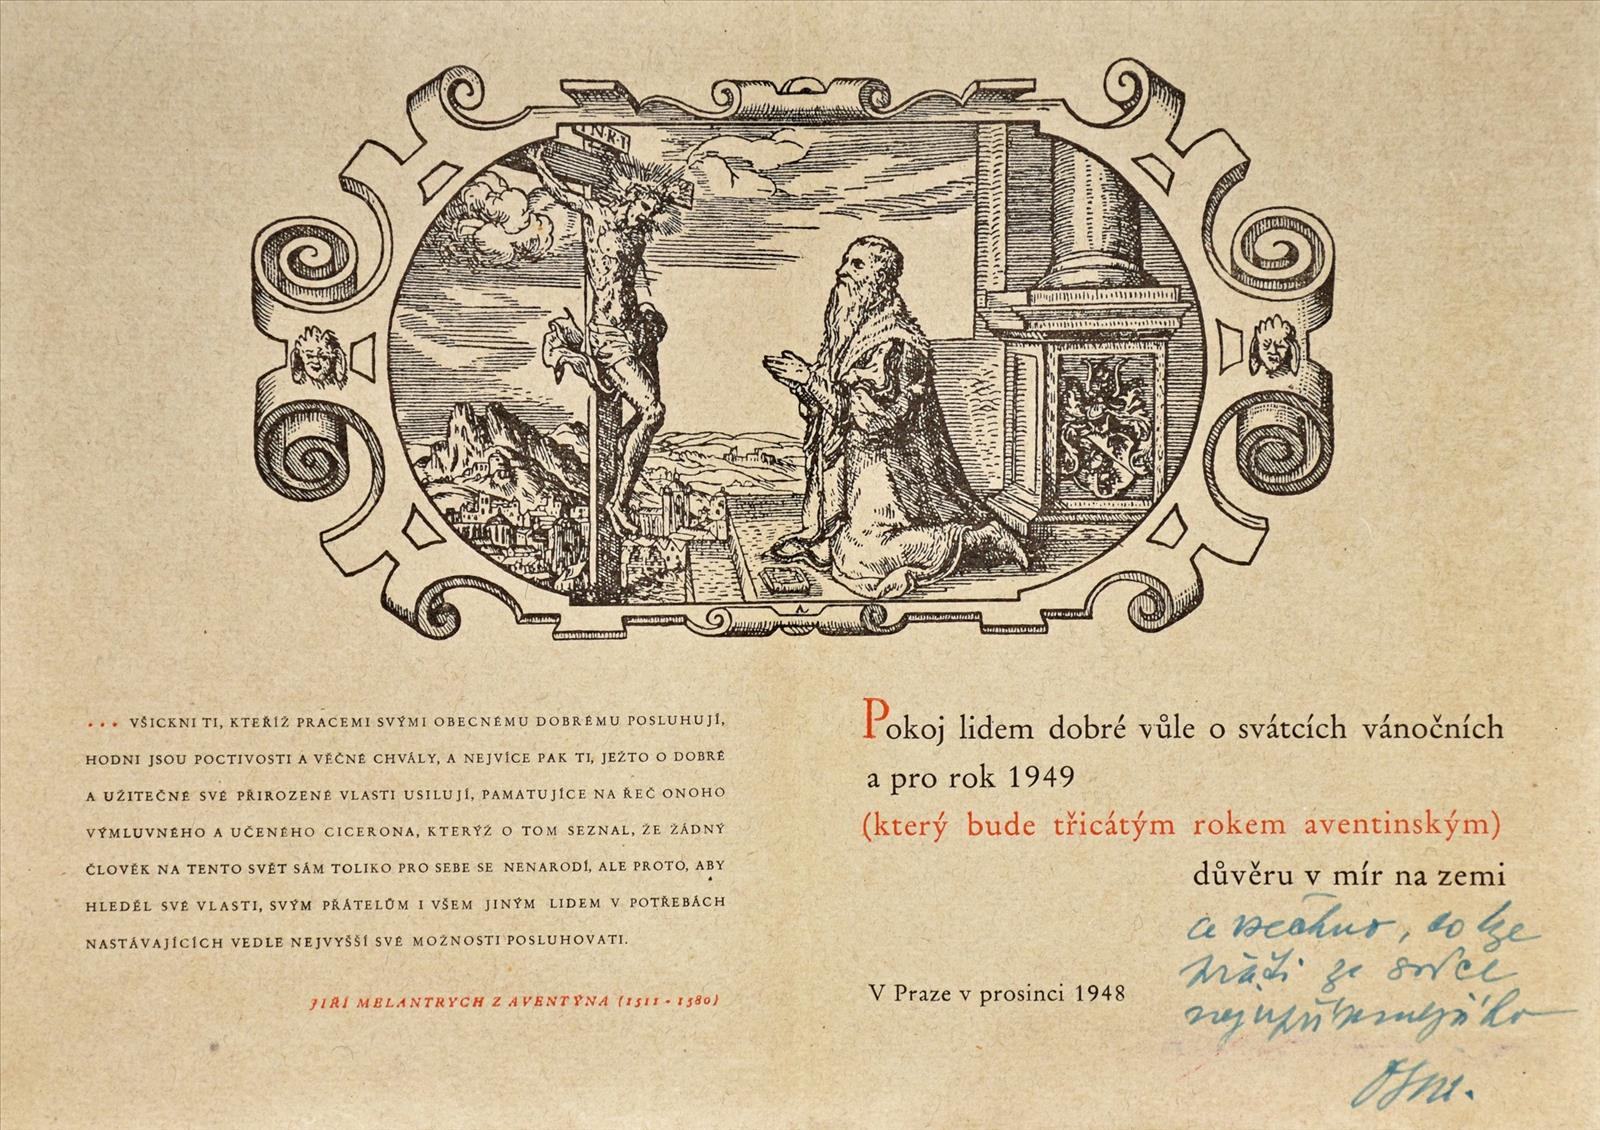 I·N·R·I
... VŠICKNI TI, KTEŘÍŽ PRACEMI SVÝMI OBECNÉMU DOBRÉMU POSLUHUJÍ,
HODNI JSOU POCTIVOSTI A VĚČNÉ CHVÁLY, A NEJVÍCE PAK TI, JEŽTO O DOBRÉ
A UŽITEČNÉ SVÉ PŘIROZENÉ VLASTI USILUJÍ, PAMATUJÍCE NA ŘEČ ONOHO
VÝMLUVNÉHO A UČENÉHO CICERONA, KTERÝŽ O TOM SEZNAL, ŽE ŽÁDNÝ
ČLOVĚK NA TENTO SVĚT SÁM TOLIKO PRO SEBE SE NENARODÍ, ALE PROTO, ABY
HLEDĚL SVÉ VLASTI, SVÝM PŘÁTELŮM I VŠEM JINÝM LIDEM V POTŘEBÁCH
NASTÁVAJÍCÍCH VEDLE NEJVYŠŠÍ SVÉ MOŽNOSTI POSLUHOVATI.
JIŘÍ MELANTRYCH Z AVENTÝNA (1511 - 1580)
Pokoj lidem dobré vůle o svátcích vánočních
a pro rok 1949
(který bude třicátým rokem aventinským)
důvěru v mír na zemi
a všechno, co lze
přáti ze srdce
nejupřímnějšího
V Praze v prosinci 1948